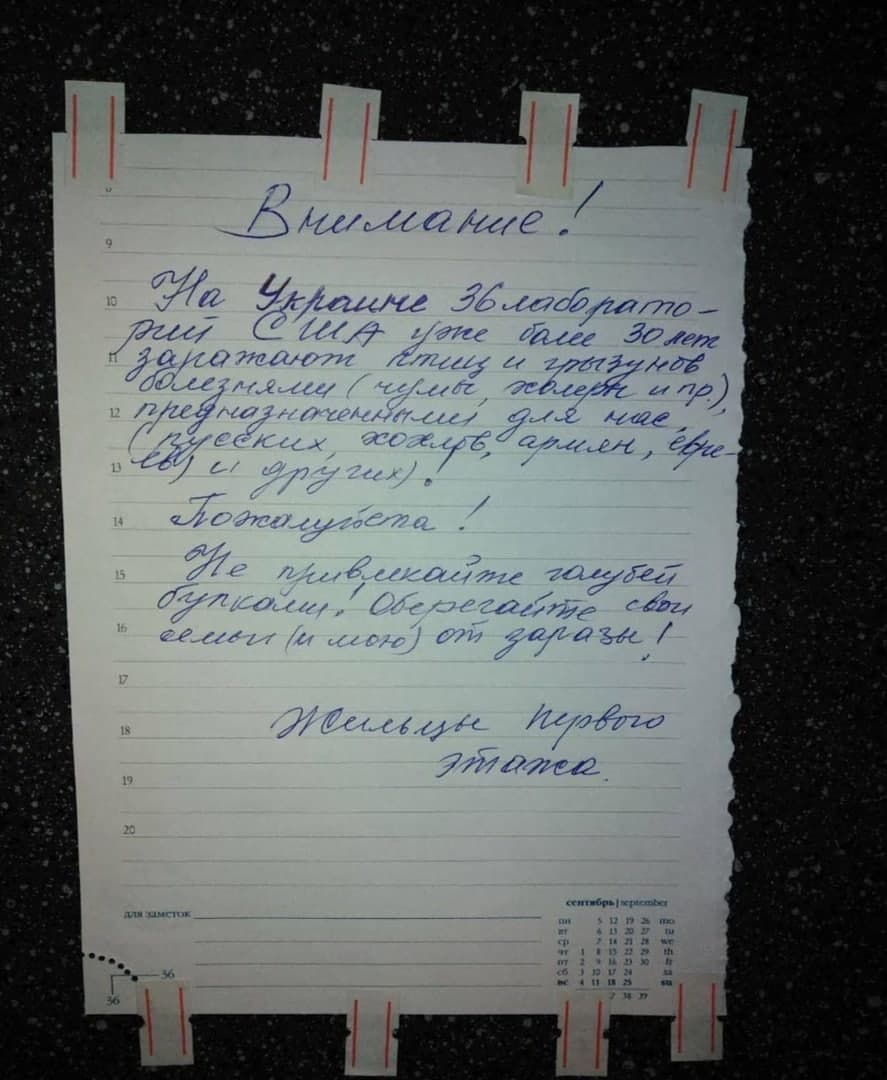 Внимание!
9
10 На Украине 36 лаборато-
рий США уже более 30 лет
11 заражают птиц и грызунов
болезнями (чумы, холеры и пр.),
12 предназначенными для нас,
(русских, хохлов, армян, евре-
13 ев) и других)!
14 Пожалуйста!
15 Не привлекайте голубей
булками! Оберегайте свои
16 семьи (и мою) от заразы!
17
18 Жильцы первого
19 этажа.
20
для заметок
сентябрь | september
пн 5 12 19 26 mo
вт 6 13 20 27 tu
ср 7 14 21 28 we
чт 1 8 15 22 29 th
пт 2 9 16 23 30 fr
сб 3 10 17 24 sa
вс 4 11 18 25 su
38 39
36
36